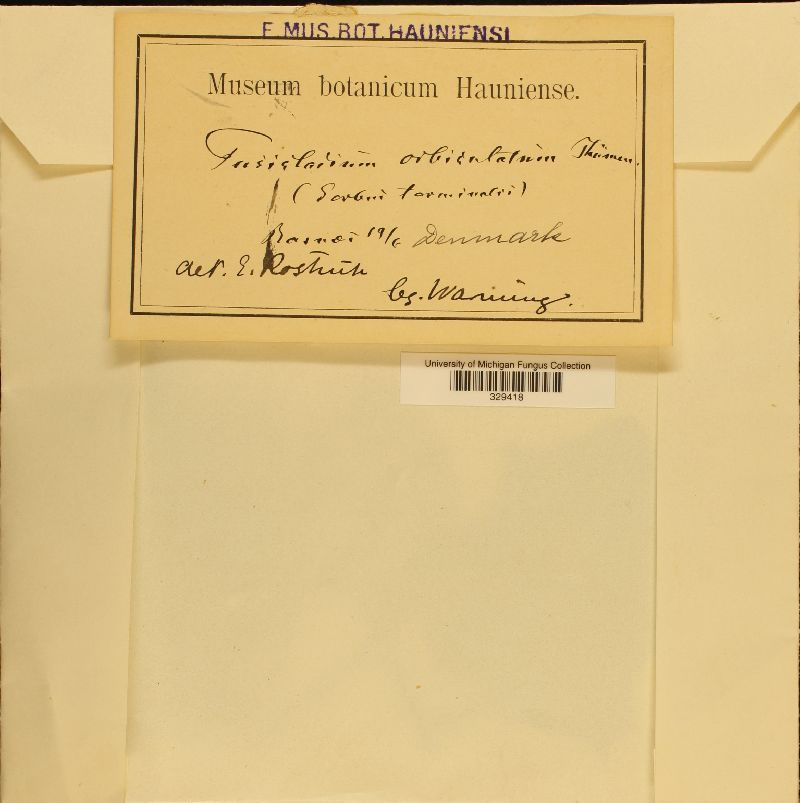 E MUS. BOT. HAUNIENSI
Museum botanicum Hauniense.
Fusicladium orbiculatum Thümen.
(Sorbus torminalis)
Basnæs 19/6 Denmark
det. E. Rostrup
leg. Warming.
University of Michigan Fungus Collection
329418